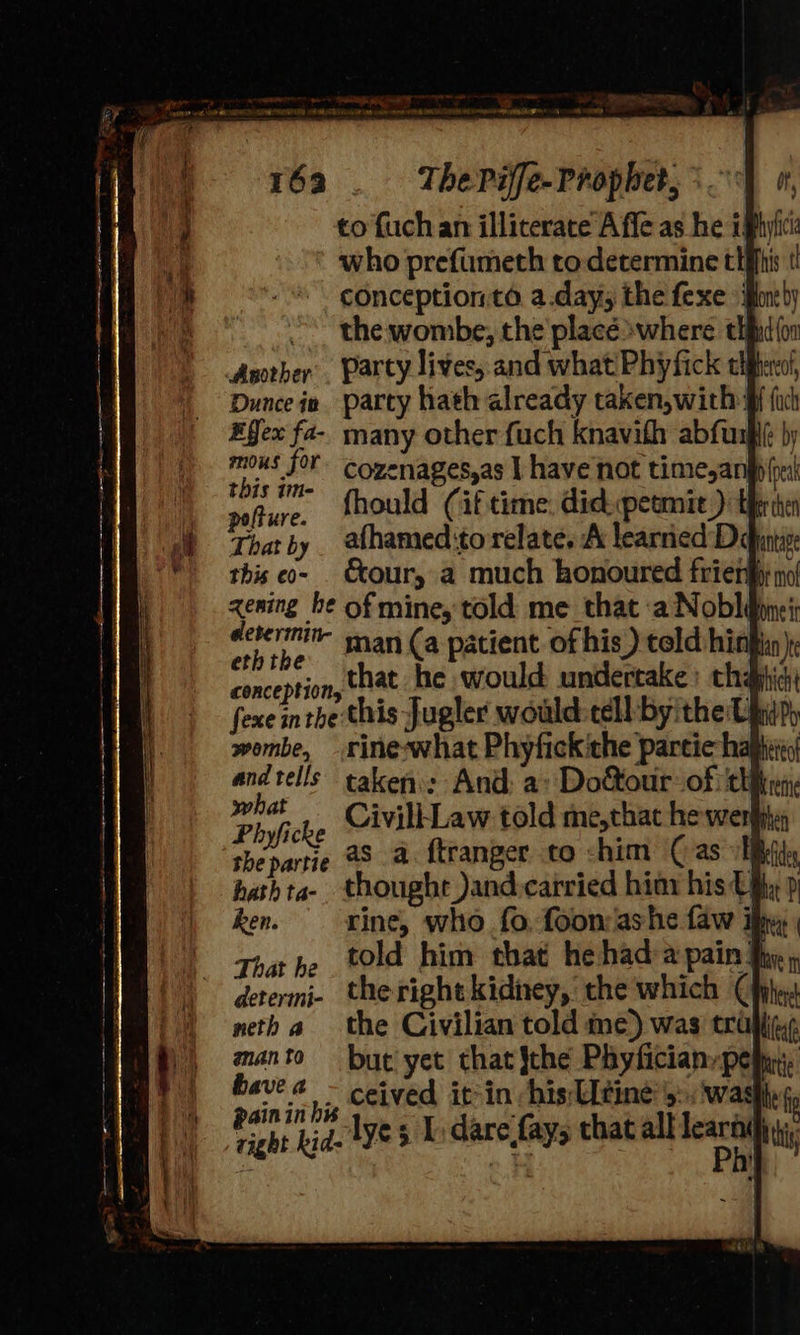 162 The Piſſe-Prophet,
to ſuch an illiterate Aſſe as he i
who preſumeth to determine t
conception to a day, the ſexe
the wombe, the place where t
party lives, and what Phyſick t
party hath already taken, with
many other ſuch knaviſh abſur
cozenages, as I have not time, an
ſhould (if time did permit)
aſhamed to relate. A learned D
ctour, a much honoured frien
of mine, told me that a Nobl
man (a patient of his) told hi
that he would undertake th
this Jugler would tell by the U
rine what Phyſick the partie ha
taken: And a Doctour of t
Civill Law told me, that he wen
as a ſtranger to him (as
thought) and carried him his U
rine, who ſo ſoon as he ſaw i
told him that he had a pain
the right kidney, the which (
the Civilian told me) was tru
but yet that the Phyſician pe
ceived it in his Urine, was
lye; I dare ſay, that all learn
Ph
Another
Dunce in
Eſſex fa-
mous for
this im-
poſture.
That by
this co-
zening he
determin-
eth the
conception,
ſexe in the
wombe,
and tells
what
Phyſicke
the partie
hath ta-
ken.
That he
determi-
neth a
man to
have a
pain in his
right kid-